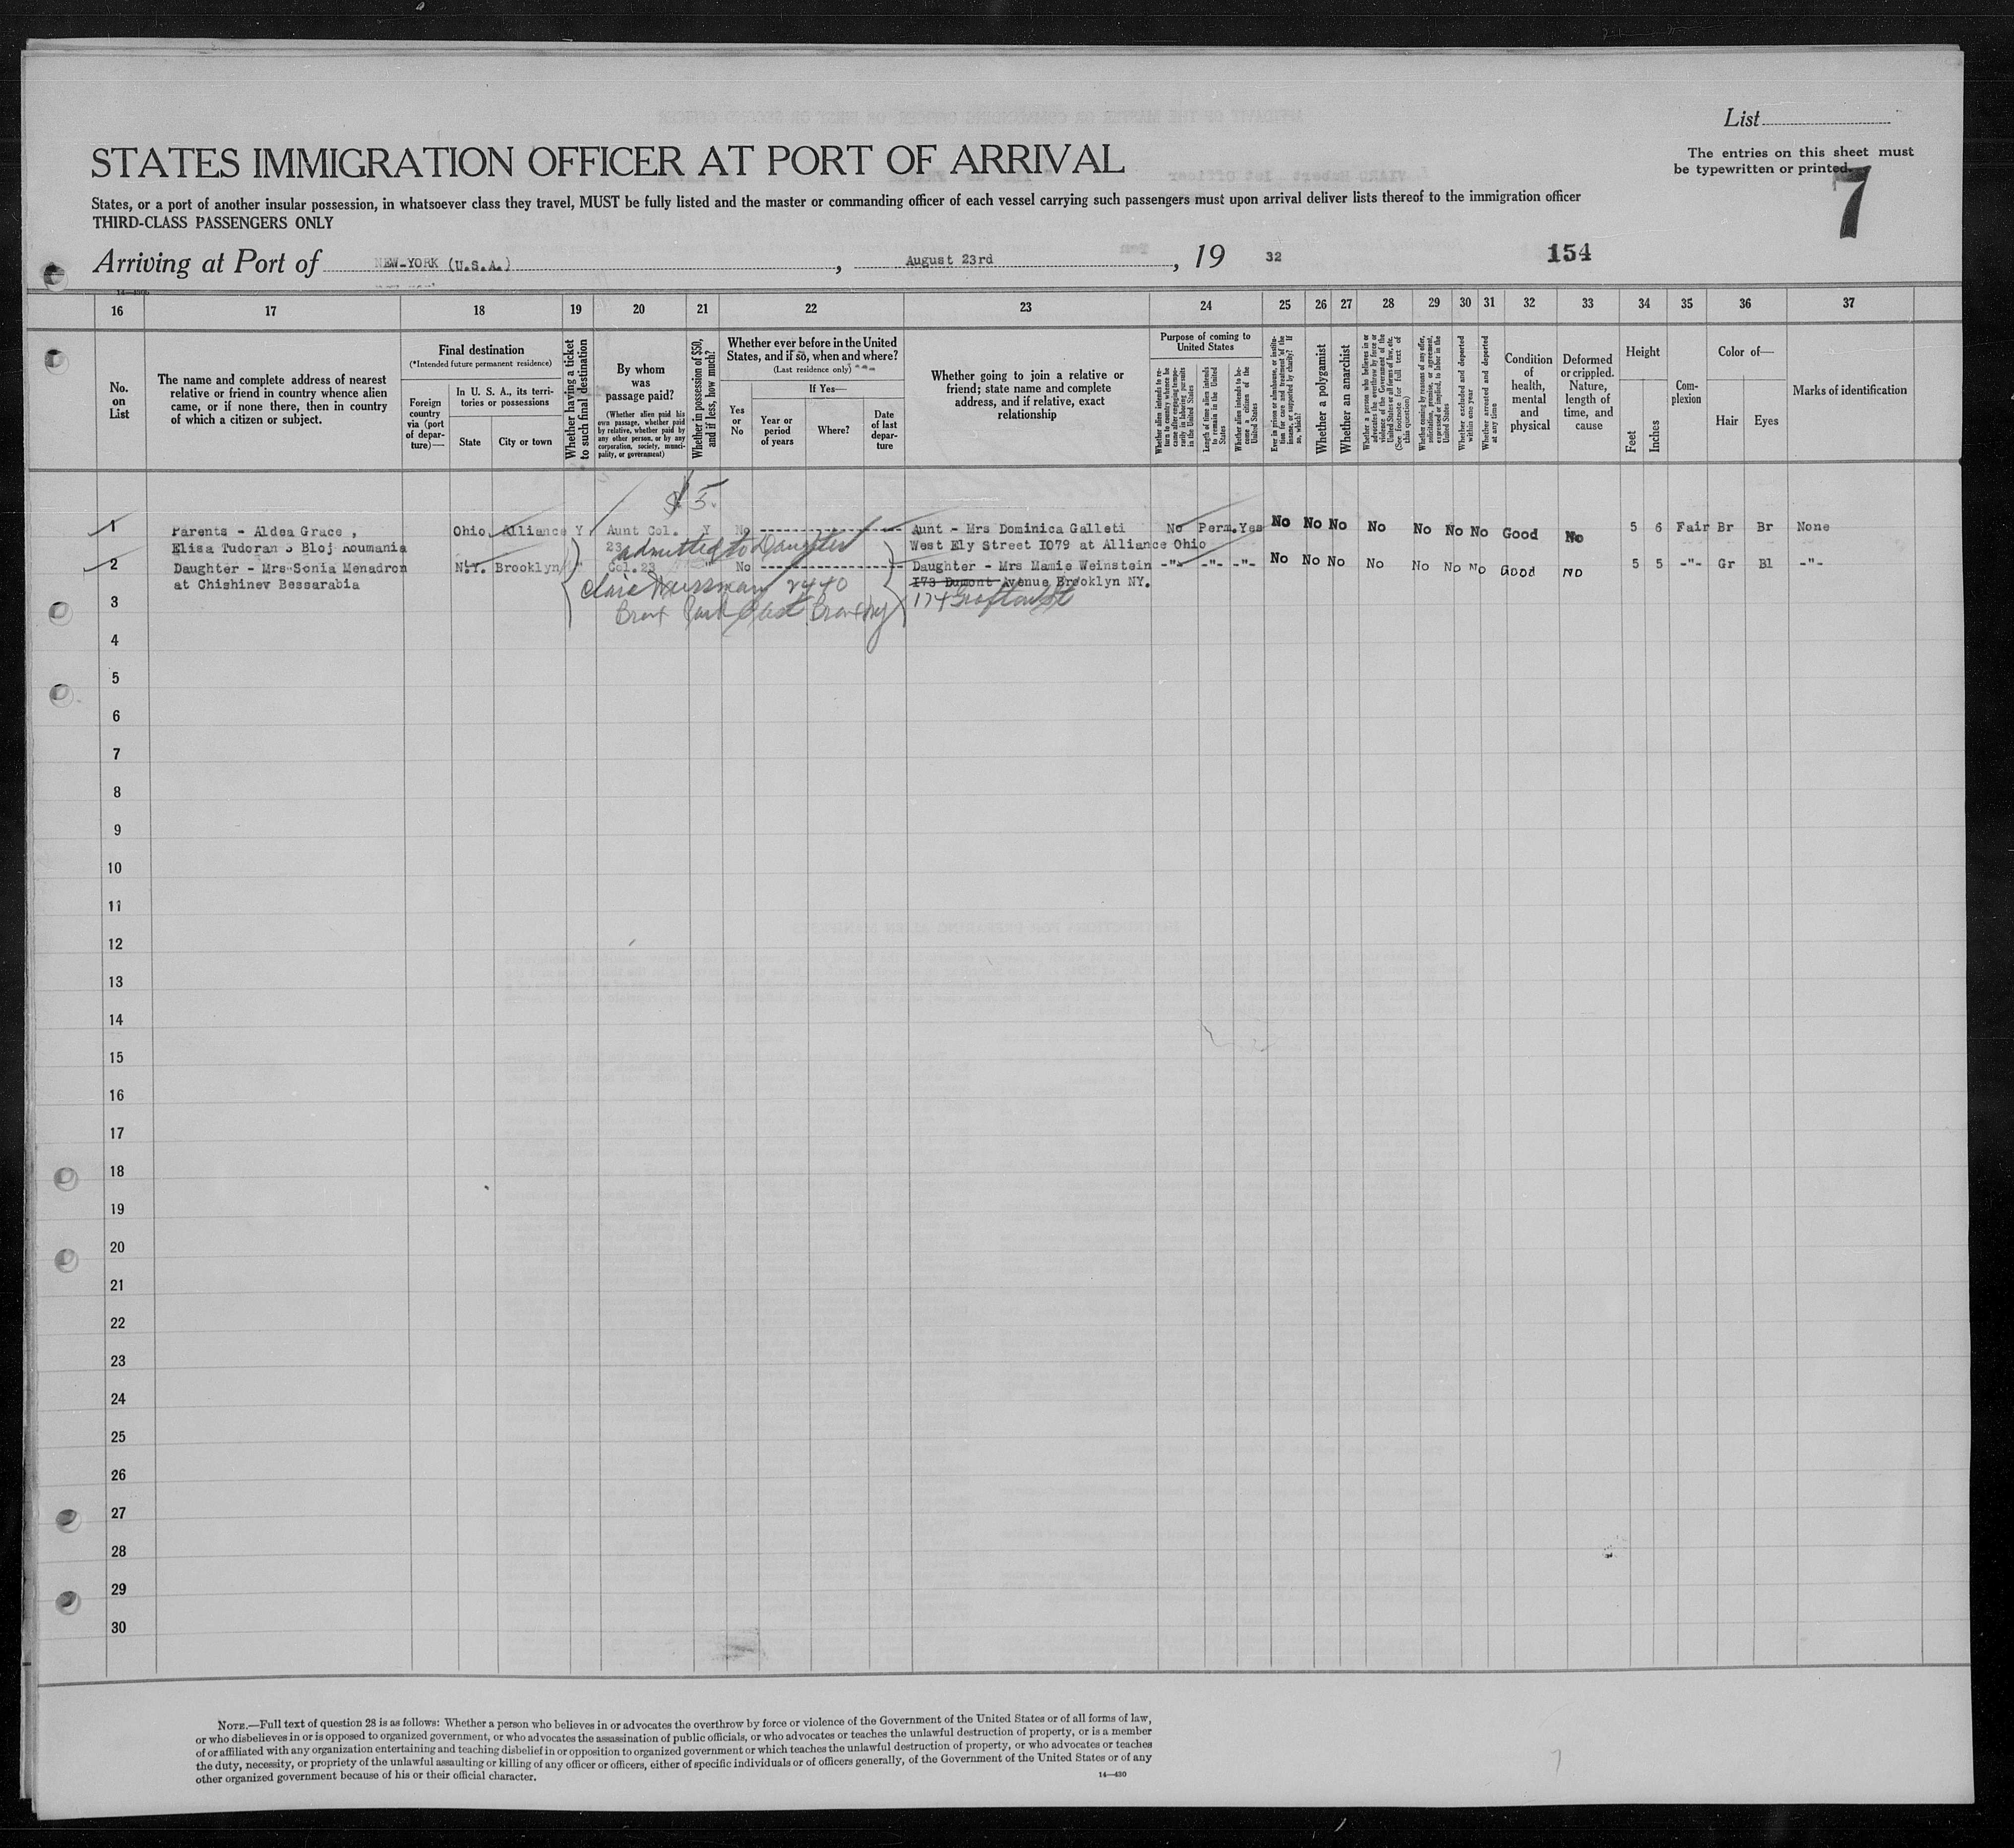 List
The entries on this sheet must
be typewritten or printed.
7
STATES IMMIGRATION OFFICER AT PORT OF ARRIVAL
States, or a port of another insular possession, in whatsoever class they travel, MUST be fully listed and the master or commanding officer of each vessel carrying such passengers must upon arrival deliver lists thereof to the immigration officer
THIRD-CLASS PASSENGERS ONLY
Arriving at Port of NEW-YORK (U.S.A.), August 23rd, 19 32
154
16 17 18 19 20 21 22 23 24 25 26 27 28 29 30 31 32 33 34 35 36 37
No. on List
The name and complete address of nearest
relative or friend in country whence alien
came, or if none there, then in country
of which a citizen or subject.
Final destination
(*Intended future permanent residence)
Foreign country via (port of departure)—
In U. S. A., its territories or possessions
State
City or town
Whether having a ticket to such final destination
By whom was passage paid?
(Whether alien paid his own passage, whether paid by relative, whether paid by any other person, or by any corporation, society, municipality, or government)
Whether in possession of $50, and if less, how much?
Whether ever before in the United
States, and if so, when and where?
(Last residence only)
Yes or No
If Yes—
Year or period of years
Where?
Date of last departure
Whether going to join a relative or
friend; state name and complete
address, and if relative, exact
relationship
Purpose of coming to United States
Whether alien intends to return to country whence he came after engaging temporarily in laboring pursuits in the United States
Length of time alien intends to remain in the United States
Whether alien intends to become a citizen of the United States
Ever in prison or almshouse, or institution for care and treatment of the insane, or supported by charity? If so, which?
Whether a polygamist
Whether an anarchist
Whether a person who believes in or advocates the overthrow by force or violence of the Government of the United States or all forms of law, etc. (See footnote for full text of this question)
Whether coming by reasons of any offer, solicitation, promise, or agreement, expressed or implied, to labor in the United States
Whether excluded and deported within one year
Whether arrested and deported at any time
Condition of health, mental and physical
Deformed or crippled. Nature, length of time, and cause
Height
Feet
Inches
Complexion
Color of—
Hair
Eyes
Marks of identification
$5.
1 Parents - Aldea Grace , Ohio Alliance Y Aunt Col. Y No Aunt - Mrs Dominica Galleti No Perm. Yes No No No No No No No Good No 5 6 Fair Br Br None
Elisa Tudoran 3 Bloj Roumania 23 admitted to Daughter West Ely Street 1079 at Alliance Ohio
2 Daughter - Mrs Sonia Menadron N.Y. Brooklyn " Col.23 " No Daughter - Mrs Mamie Weinstein -"- -"- -"- No No No No No No No Good No 5 5 -"- Gr Bl -"-
at Chishinev Bessarabia 173 Dumont Avenue Brooklyn NY.
3 174
Bronx Park East Bronx NY
4
5
6
7
8
9
10
11
12
13
14
15
16
17
18
19
20
21
22
23
24
25
26
27
28
29
30
NOTE.—Full text of question 28 is as follows: Whether a person who believes in or advocates the overthrow by force or violence of the Government of the United States or of all forms of law,
or who disbelieves in or is opposed to organized government, or who advocates the assassination of public officials, or who advocates or teaches the unlawful destruction of property, or is a member
of or affiliated with any organization entertaining and teaching disbelief in or opposition to organized government or which teaches the unlawful destruction of property, or who advocates or teaches
the duty, necessity, or propriety of the unlawful assaulting or killing of any officer or officers, either of specific individuals or of officers generally, of the Government of the United States or of any
other organized government because of his or their official character.
14—430